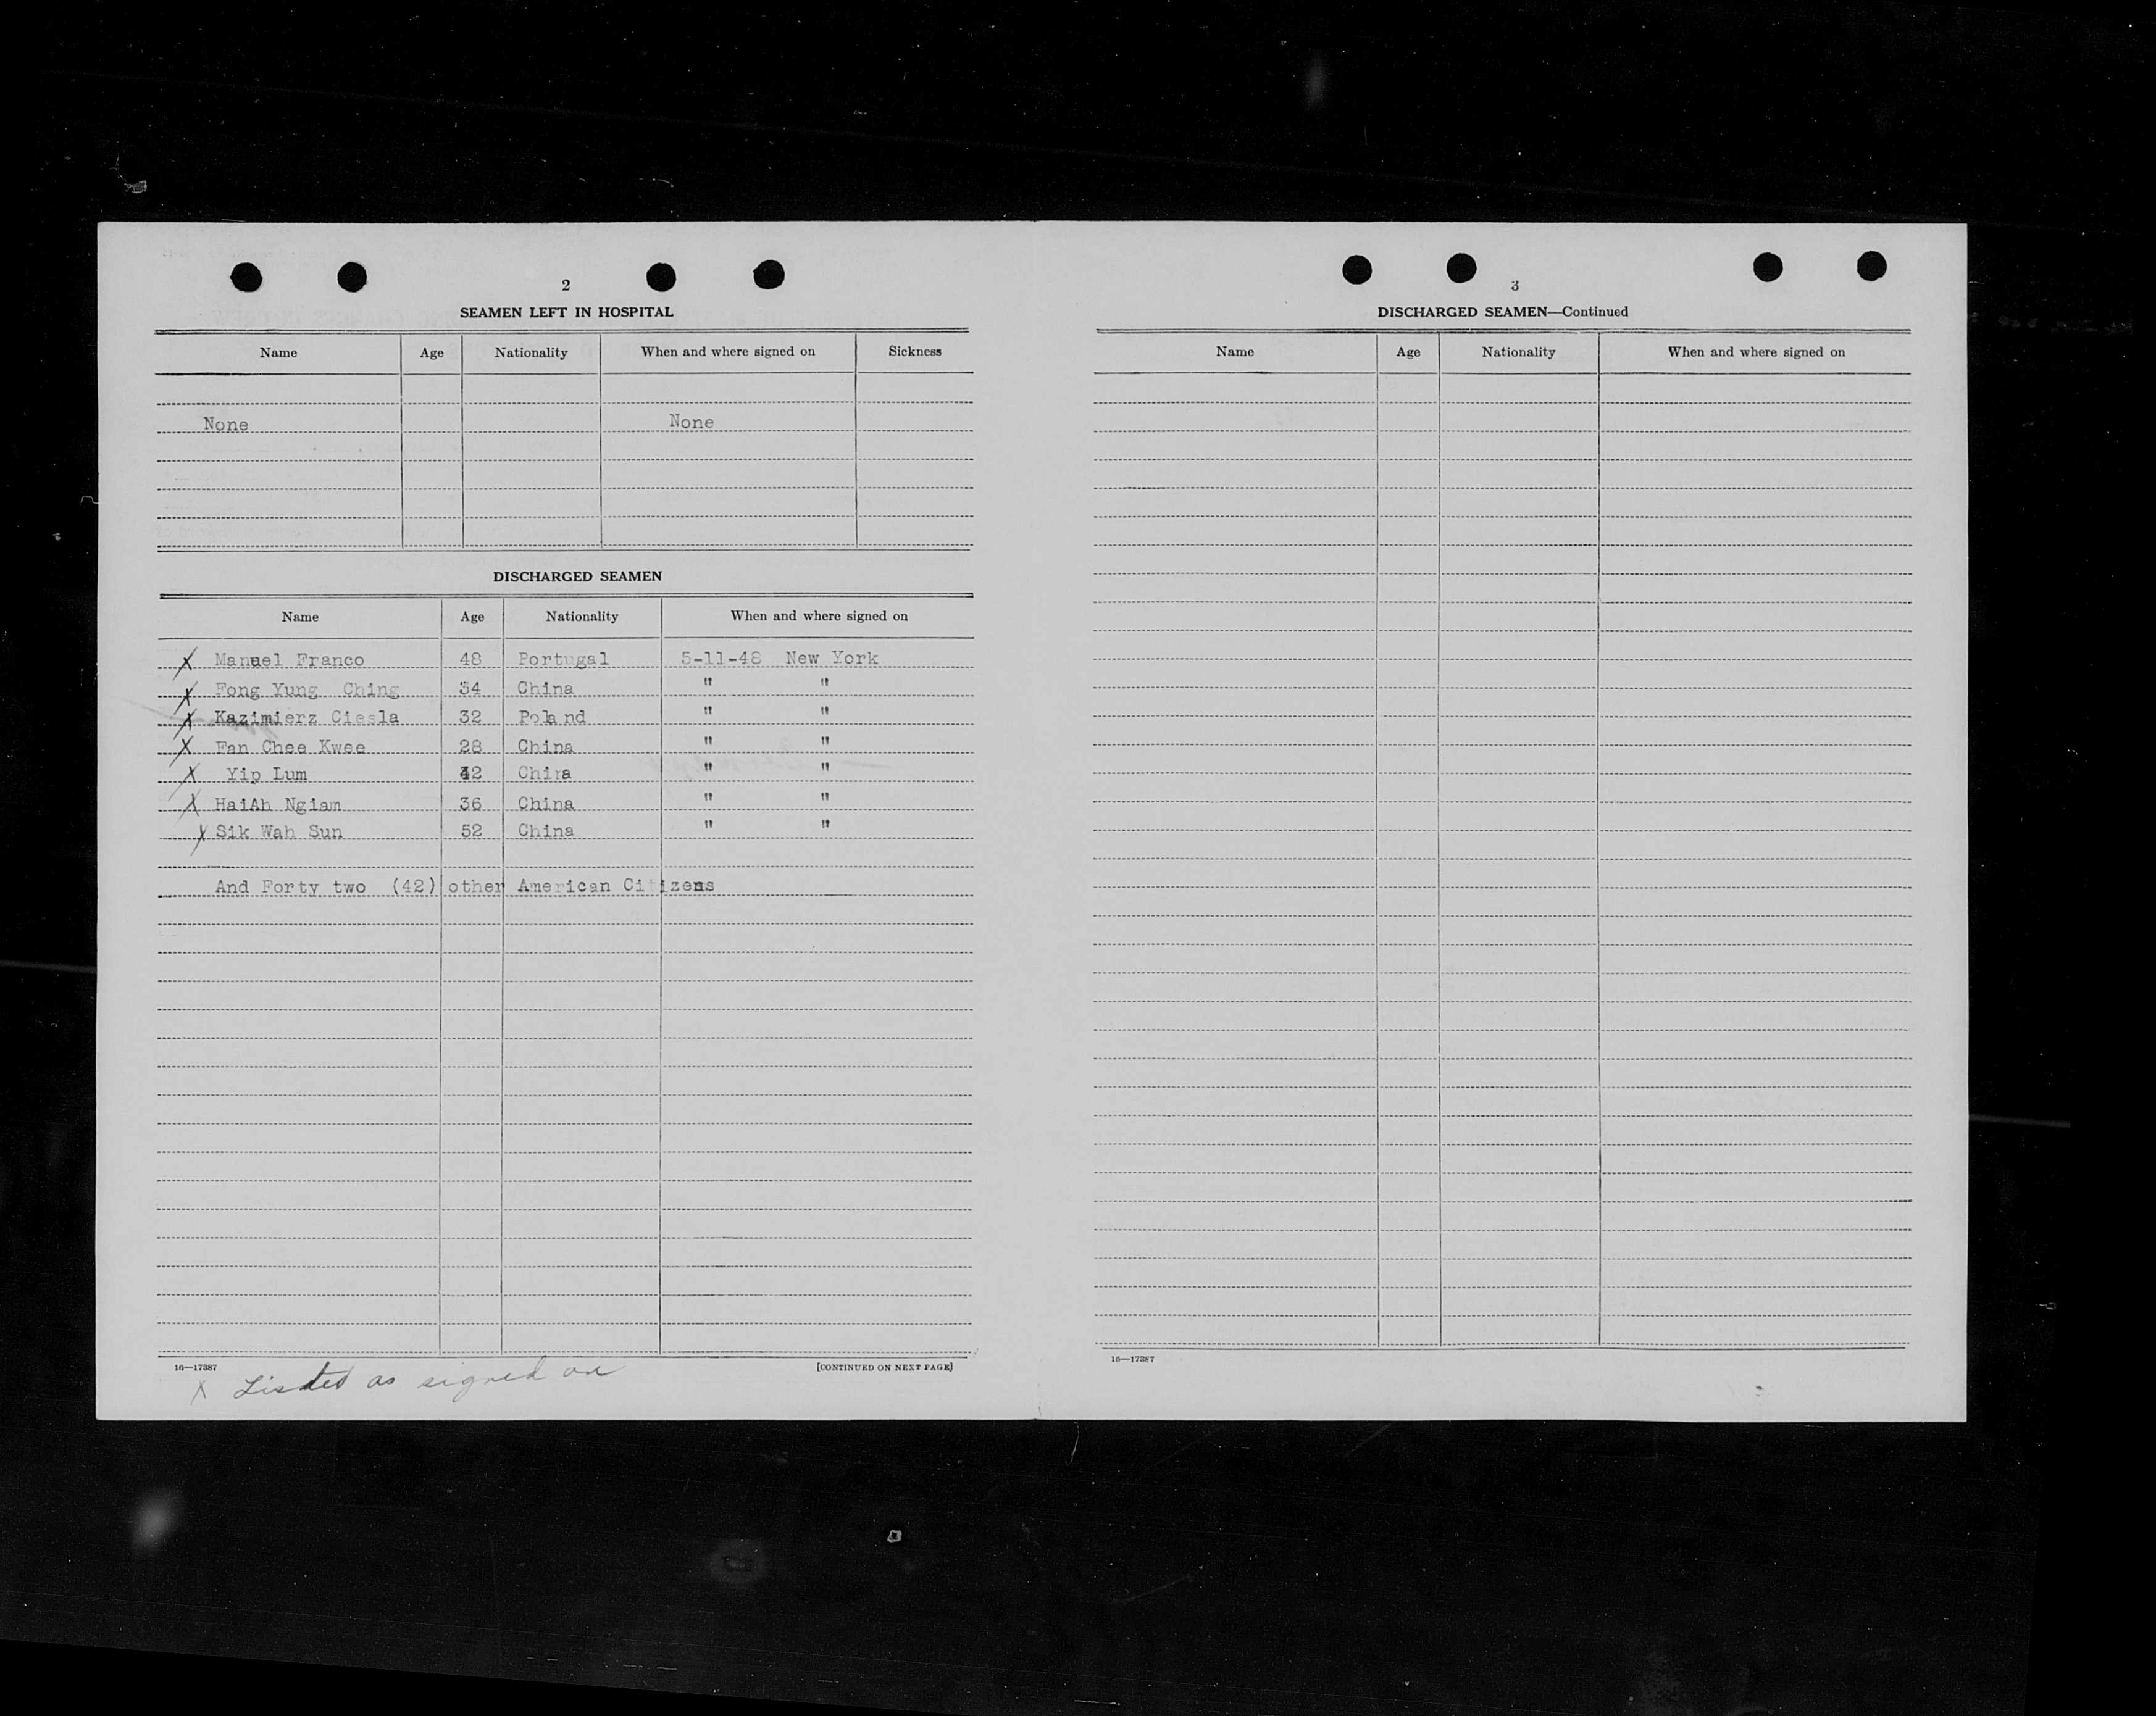 2
SEAMEN LEFT IN HOSPITAL
Name Age Nationality When and where signed on Sickness
None None
DISCHARGED SEAMEN
Name Age Nationality When and where signed on
X Manuel Franco 48 Portugal 5-11-48 New York
X Fong Yung Ching 34 China " "
X Kazimierz Ciesla 32 Poland " "
X Fan Chee Kwee 28 China " "
X Yip Lum 42 China " "
X HaiAh Ngiam 36 China " "
X Sik Wah Sun 52 China " "
And Forty two (42) other American Citizens
16—17387
[CONTINUED ON NEXT PAGE]
X Listed as signed on
3
DISCHARGED SEAMEN—Continued
Name Age Nationality When and where signed on
16—17387